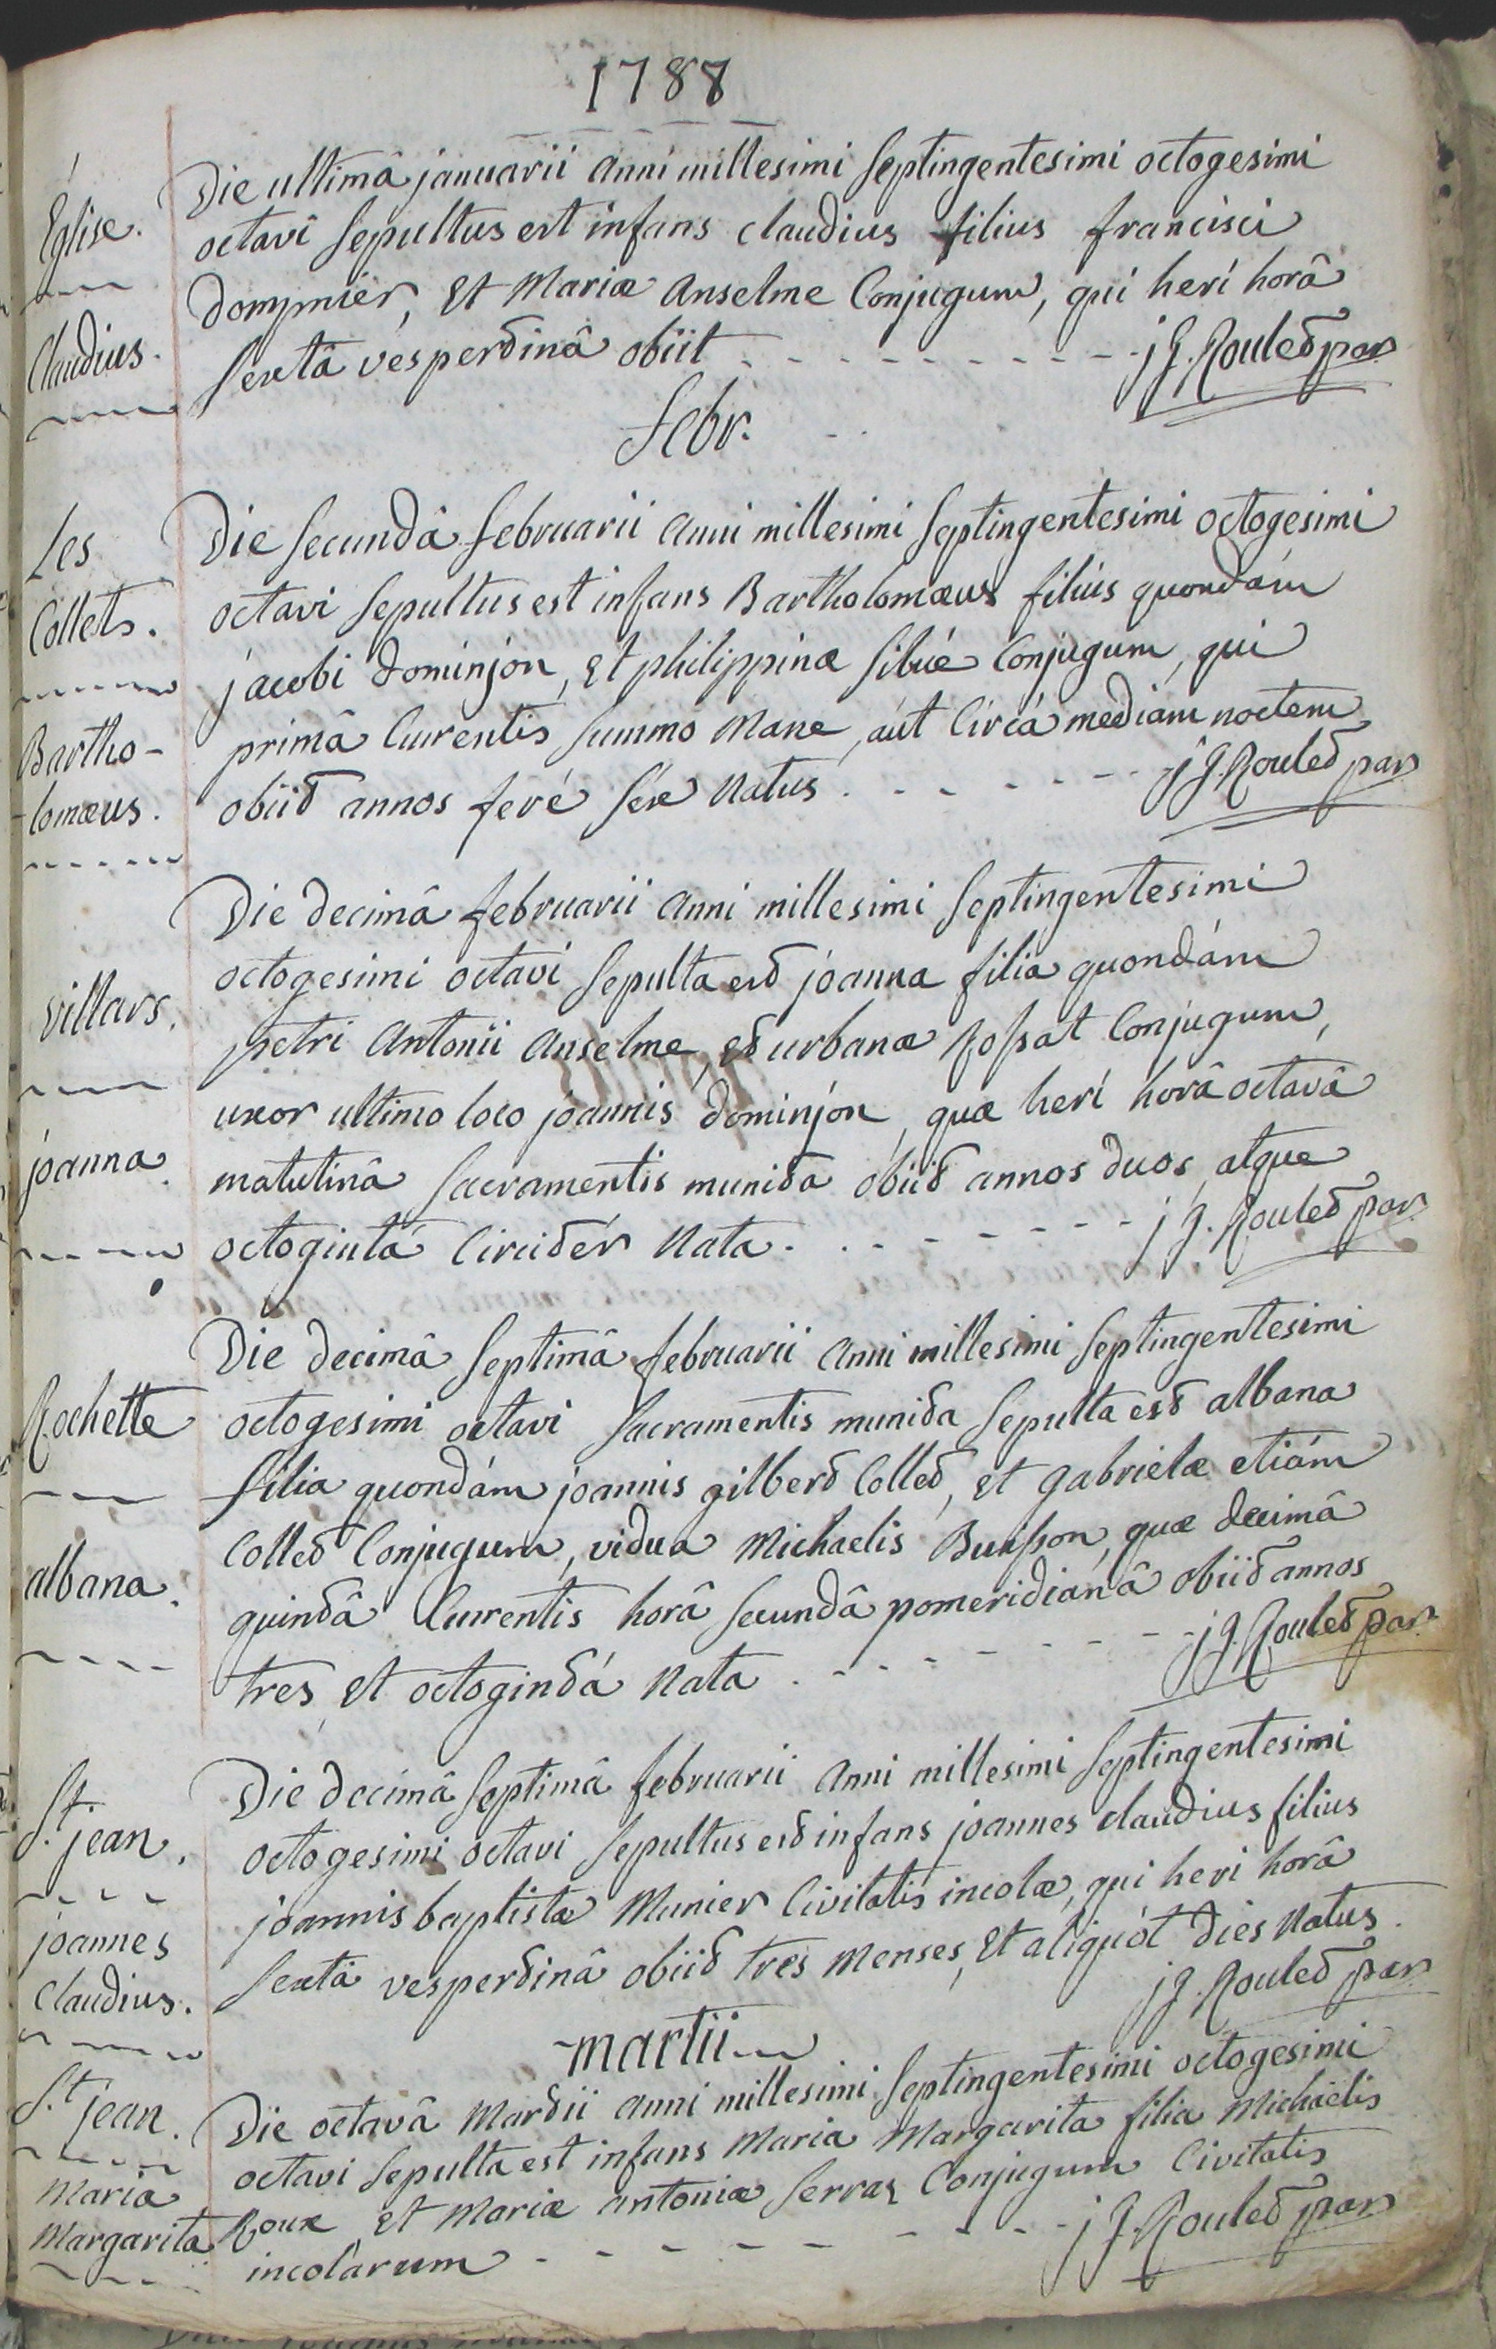 1788
Église.
Claudius.
Die ultimâ januarii anni millesimi septingentesimi octogesimi
octavi sepultus est infans claudius filius francisci
dompnier, et Mariæ anselme Conjugum, qui heri horâ
sextâ vespertinâ obiit - - - - - - - - - j J. Roulet par
febr.
Les
Collets.
Bartho-
-lomæus.
Die secundâ februarii anni millesimi septingentesimi octogesimi
octavi sepultus est infans Bartholomæus filius quondám
jacobi dominjon, et philippinæ Sibüé Conjugum, qui
primâ Currentis summo mane, aút Circá mediam noctem
obiit annos feré séx natus. - - - - - - j J. Roulet par
Villars.
joanna.
Die decimâ februarii anni millesimi septingentesimi
octogesimi octavi sepulta est joanna filia quondám
petri Antonii anselme, et urbanæ fossat Conjugum,
uxor ultimo loco joannis dominjon, quæ heri horâ octavâ
matutinâ sacramentis munita obiit annos duos, atque
octogintá Circitér nata. - - - - - - j J. Roulet par
Rochette
albana.
Die decimâ septimâ februarii anni millesimi septingentesimi
octogesimi octavi sacramentis munita sepulta est albana
filia quondám joannis gilbert Collet, et gabrielæ etiám
Collet Conjugum, vidua Michaelis Buisson, quæ decimâ
quintâ Currentis horâ secundâ pomeridianâ obiit annos
tres, et octogintá nata. - - - - - - j J. Roulet par
St. jean.
joannes
Claudius.
Die decimâ septimâ februarii anni millesimi septingentesimi
octogesimi octavi sepultus est infans joannes claudius filius
joannis baptistæ Munier Civitatis incolæ, qui heri horâ
sextâ vespertinâ obiit tres menses, et aliquót dies natus.
j J. Roulet par
martii
St. jean.
Maria
Margarita
Die octavâ Martii anni millesimi septingentesimi octogesimi
octavi sepulta est infans Maria Margarita filia Michaëlis
Roux et Mariæ antoniæ Serraz Conjugum Civitatis
incolarum - - - - - - - - j J. Roulet par